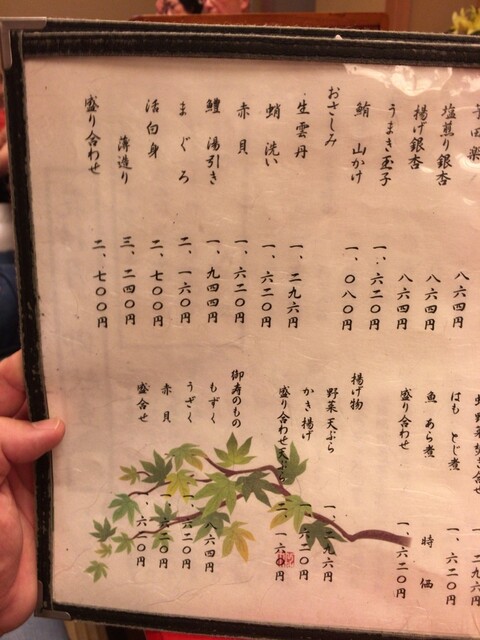 田楽 八六四円
塩煎り銀杏 八六四円
揚げ銀杏 八六四円
うまき玉子 一、六二〇円
鮪 山かけ 一、〇八〇円
おさしみ
生雲丹 一、二九六円
蛸 洗い 一、六二〇円
赤貝 一、六二〇円
鱧 湯引き 一、九四四円
まぐろ 二、一六〇円
活白身 二、七〇〇円
薄造り 三、二四〇円
盛り合わせ 二、七〇〇円
野菜焚き合せ 一、二九六
はも とじ煮 一、六二〇円
魚 あら煮 時価
盛り合わせ 一、六二〇円
揚げ物
野菜 天ぷら 一、二九六円
かき揚げ 一、六二〇円
盛り合わせ天ぷら 二、一六〇円
御寿のもの
もずく 八六四円
うざく 一、六二〇円
赤貝 一、六二〇円
盛合せ 一、六二〇円